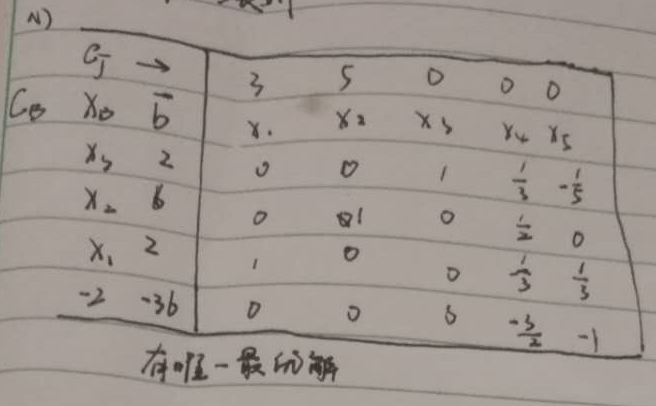 N)
C_j → 3 5 0 0 0
C_B X_B b̄ x₁ x₂ x₃ x₄ x₅
x₃ 2 0 0 1 1/3 -1/5
x₂ 6 0 1 0 1/2 0
x₁ 2 1 0 0 -1/3 1/3
-2 -36 0 0 0 -3/2 -1
有唯一最优解